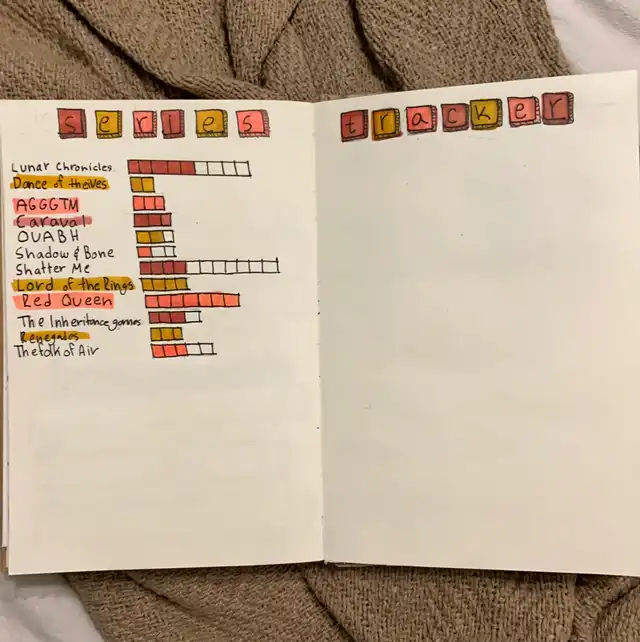 series tracker
Lunar Chronicles
Dance of theives
AGGGTM
Caraval
OUABH
Shadow & Bone
Shatter Me
Lord of the Rings
Red Queen
The Inheritance games
Renegades
The folk of Air